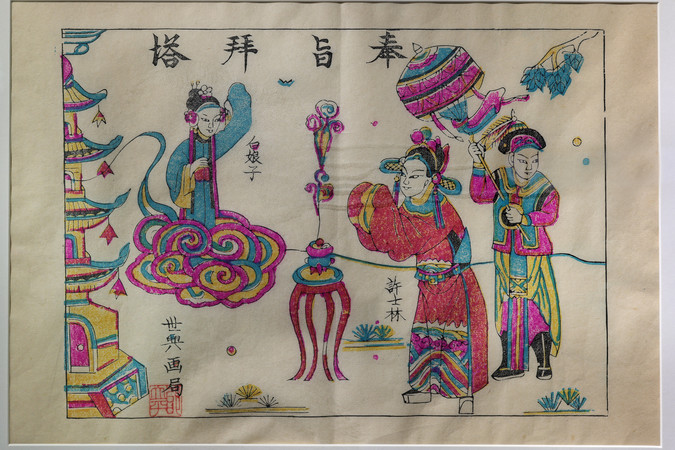 奉旨拜塔
白娘子
許士林
世興画局